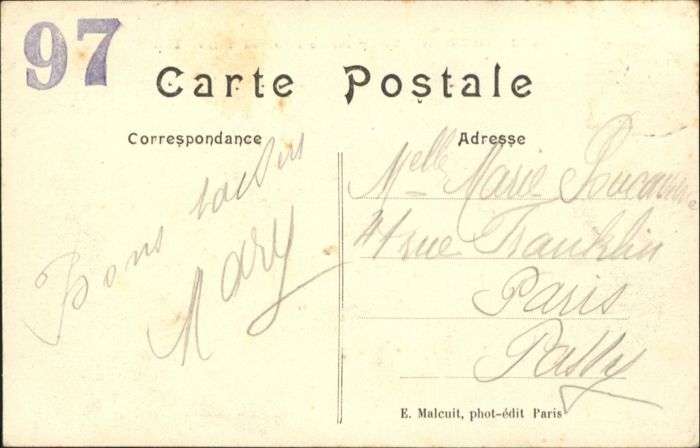 97
Carte Postale
Correspondance
Adresse
Bons baisers
Mary
Melle Marie
41 rue Franklin
Paris
Passy
E. Malcuit, phot-édit Paris